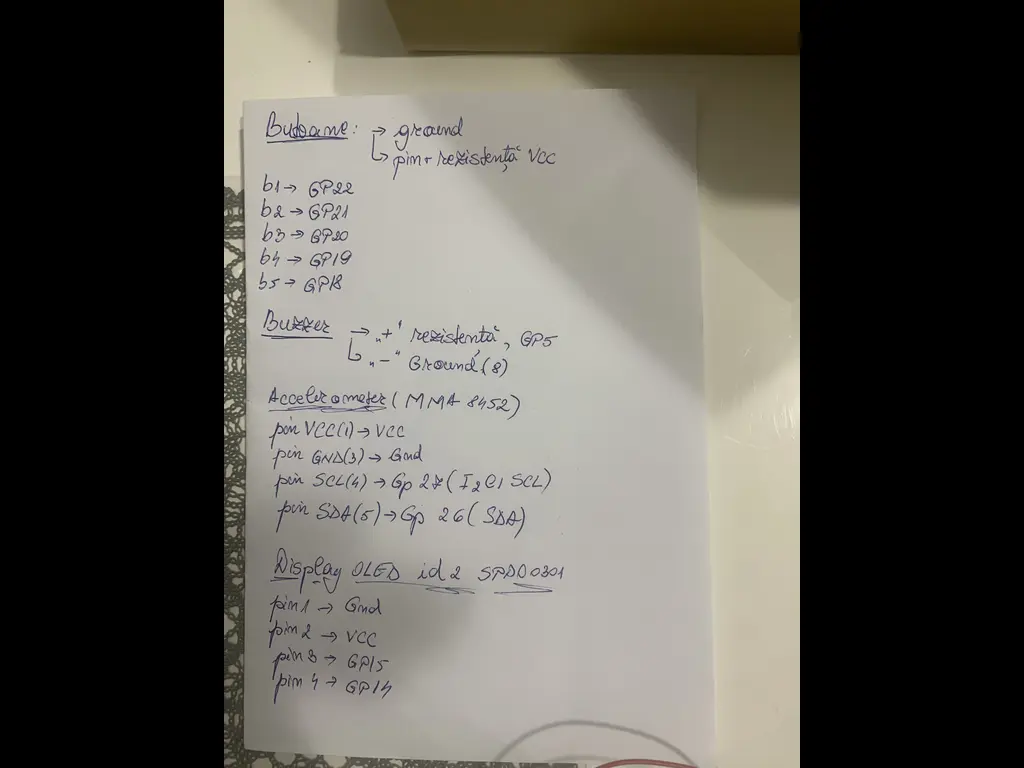 Butoane: → ground
↳ pin + rezistență VCC
b1 → GP22
b2 → GP21
b3 → GP20
b4 → GP19
b5 → GP18
Buzzer → „+" rezistență, GP5
↳ „-" Ground (8)
Accelerometer (MMA 8452)
pin VCC(1) → VCC
pin GND(3) → Gnd
pin SCL(4) → Gp 27 (I2C1 SCL)
pin SDA(5) → Gp 26 (SDA)
Display OLED id2 SPDD0301
pin 1 → Gnd
pin 2 → VCC
pin 3 → GP15
pin 4 → GP14